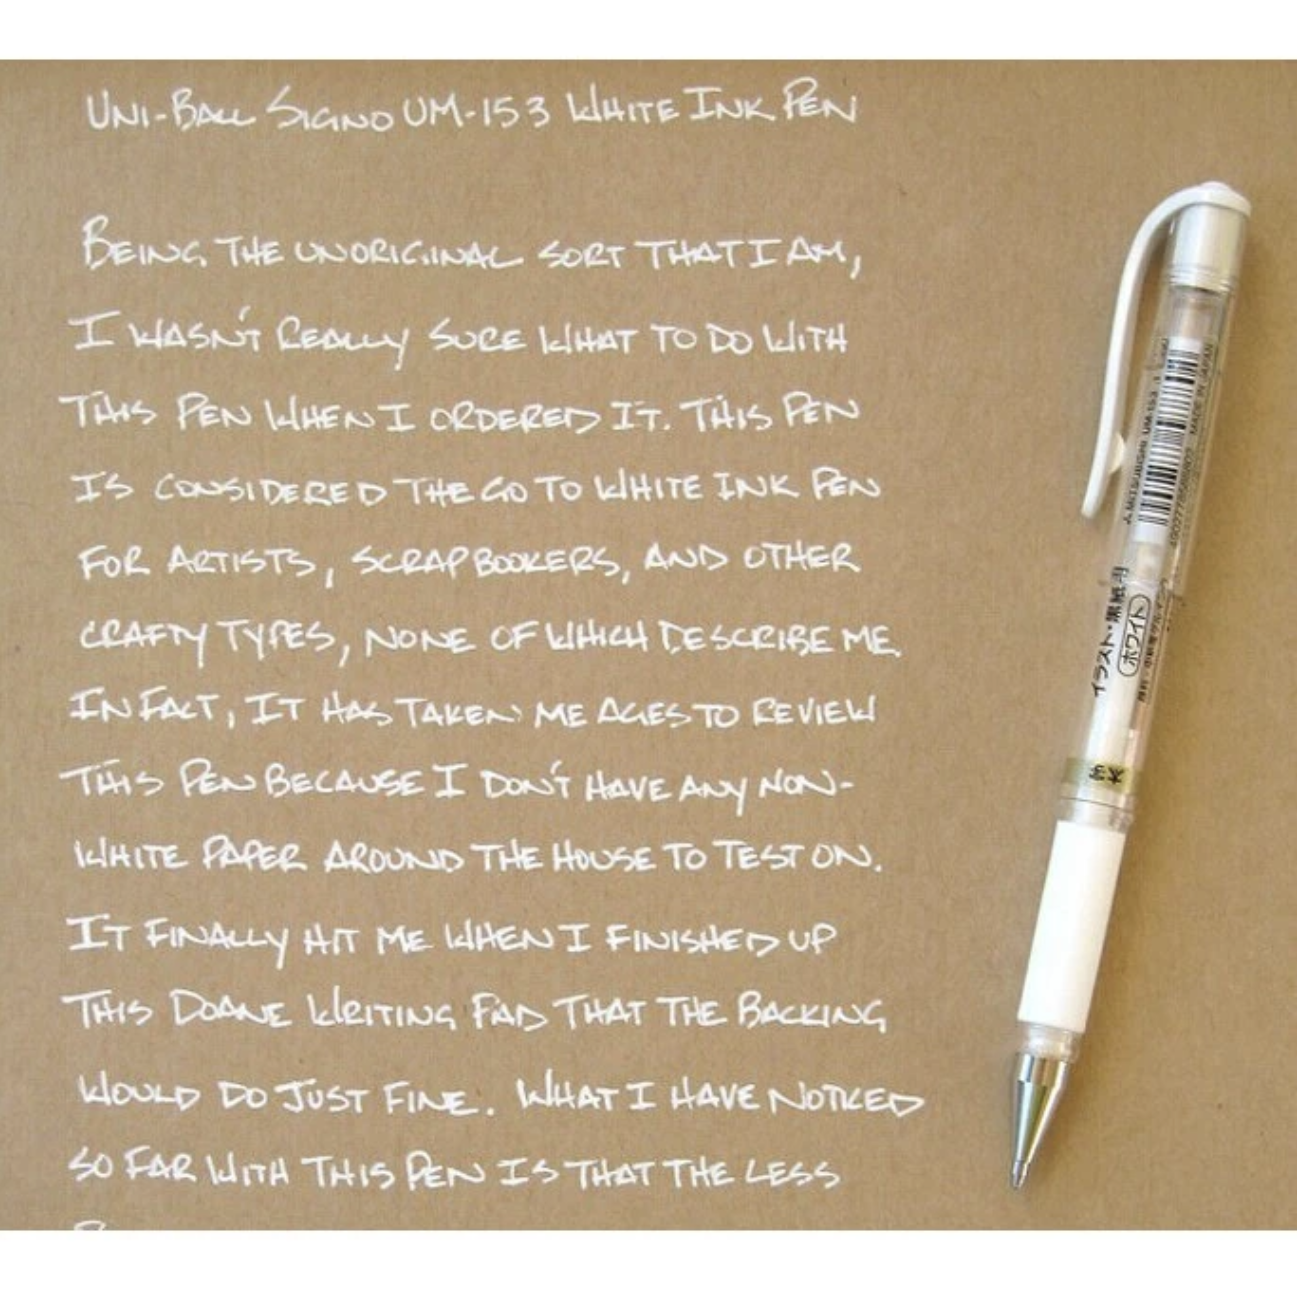 UNI-BALL SIGNO UM-153 WHITE INK PEN
BEING THE UNORIGINAL SORT THAT I AM,
I WASN'T REALLY SURE WHAT TO DO WITH
THIS PEN WHEN I ORDERED IT. THIS PEN
IS CONSIDERED THE GO TO WHITE INK PEN
FOR ARTISTS, SCRAPBOOKERS, AND OTHER
CRAFTY TYPES, NONE OF WHICH DESCRIBE ME.
IN FACT, IT HAS TAKEN ME AGES TO REVIEW
THIS PEN BECAUSE I DON'T HAVE ANY NON-
WHITE PAPER AROUND THE HOUSE TO TEST ON.
IT FINALLY HIT ME WHEN I FINISHED UP
THIS DOANE WRITING PAD THAT THE BACKING
WOULD DO JUST FINE. WHAT I HAVE NOTICED
SO FAR WITH THIS PEN IS THAT THE LESS
MITSUBISHI UM-153
MADE IN JAPAN
イラスト・黒紙用
ホワイト